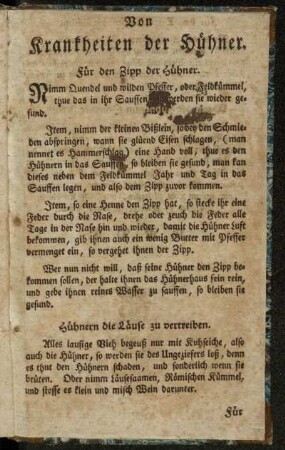 Von
Krankheiten der Hühner.
Für den Zipp der Hühner.
Nimm Quendel und wilden Pfeffer, oder Feldkümmel,
thue das in ihr Sauffen, werden sie wieder ge-
sund.
Item, nimm der kleinen Bißlein, so bey den Schmie-
den abspringen, wann sie glüend Eisen schlagen, (man
nennet es Hammerschlag) eine Hand voll, thue es den
Hühnern in das Sauffen, so bleiben sie gesund, man kan
dieses neben dem Feldkümmel Jahr und Tag in das
Sauffen legen, und also dem Zipp zuvor kommen.
Item, so eine Henne den Zipp hat, so stecke ihr eine
Feder durch die Nase, drehe oder zeuch die Feder alle
Tage in der Nase hin und wieder, damit die Hühner Luft
bekommen, gib ihnen auch ein wenig Butter mit Pfeffer
vermenget ein, so vergehet ihnen der Zipp.
Wer nun nicht will, daß seine Hühner den Zipp be-
kommen sollen, der halte ihnen das Hühnerhaus fein rein,
und gebe ihnen reines Wasser zu sauffen, so bleiben sie
gesund.
Hühnern die Läuse zu vertreiben.
Alles lausige Vieh begeuß nur mit Kuhseiche, also
auch die Hühner, so werden sie des Ungeziefers loß, denn
es thut den Hühnern schaden, und sonderlich wenn sie
brüten. Oder nimm Läusesaamen, Römischen Kümmel,
und stosse es klein und misch Wein darunter.
Für